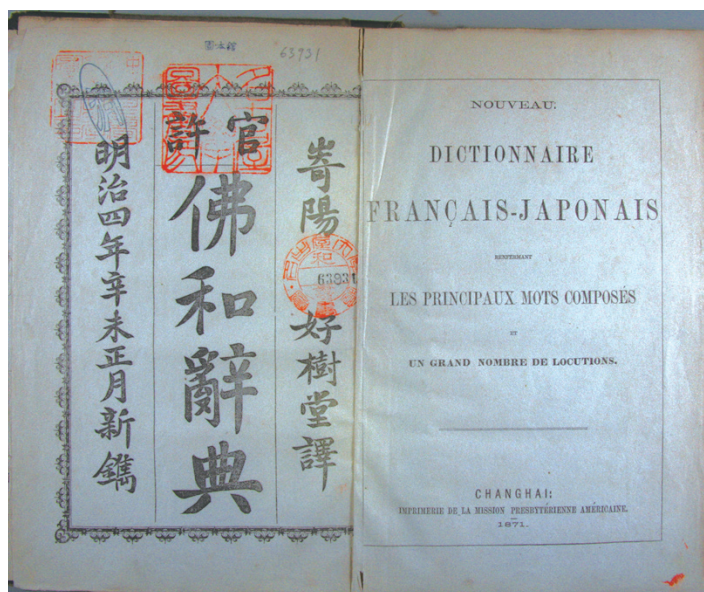 63931
官許
嵜陽 好樹堂譯
63931
佛和辭典
明治四年辛未正月新鐫
NOUVEAU.
DICTIONNAIRE
FRANÇAIS-JAPONAIS
RENFERMANT
LES PRINCIPAUX MOTS COMPOSÉS
ET
UN GRAND NOMBRE DE LOCUTIONS.
CHANGHAI:
IMPRIMERIE DE LA MISSION PRESBYTÉRIENNE AMÉRICAINE.
1871.